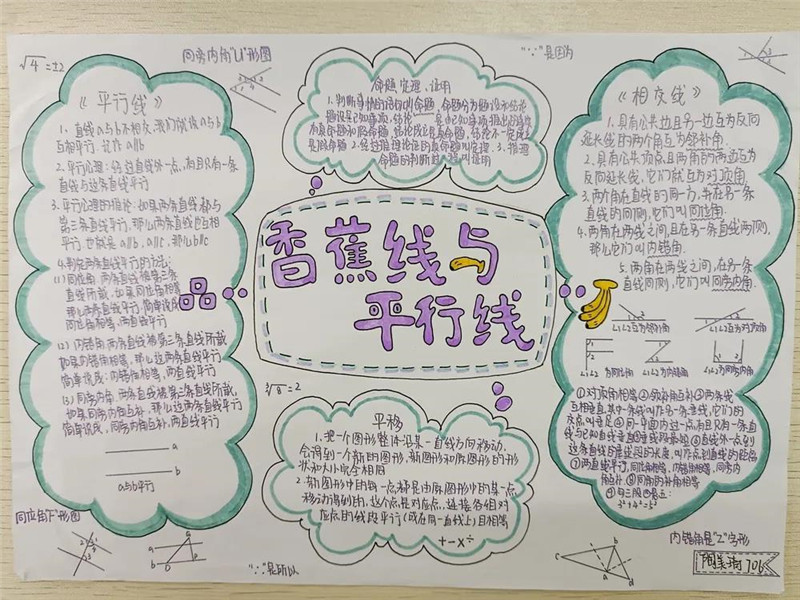 √4=±2
同旁内角"U"形图
"∵"是因为
《平行线》
1、直线a与b不相交,我们就说a与b
互相平行.记作a∥b
2.平行公理:经过直线外一点,有且只有一条
直线与这条直线平行
3.平行公理的推论:如果两条直线都与
第三条直线平行,那么两条直线也互相
平行.也就是a∥b,a∥c,那么b∥c
4.判定两条直线平行的方法:
(1)同位角:两条直线被第三条
直线所截,如果同位角相等
那么两条直线平行.简单说成
同位角相等,两直线平行
(2)内错角:两条直线被第三条直线所截
如果内错角相等,那么这两条直线平行
简单说成:内错角相等,两直线平行
(3)同旁内角:两条直线被第三条直线所截,
如果同旁内角互补,那么这两条直线平行
简单说成,同旁内角互补,两直线平行
a
b
a与b平行
命题、定理、证明
1.判断事情的语句叫命题,命题分为题设和结论
题设是已知事项,结论是由已知事项推出的事项
2.经过推理证实的真命题叫定理.3.推理
香蕉线与
平行线
∛8=2
平移
1.把一个图形整体沿某一直线方向移动,
会得到一个新的图形,新图形和原图形的形
状和大小完全相同
2.新图形中的每一点,都是由原图形中的某一点
移动得到的,这个点是对应点,连接各组对
应点的线段平行(或在同一直线上)且相等
+-×÷
《相交线》
1.具有公共边且另一边互为反向
延长线的两个角互为邻补角.
2.具有公共顶点且两角的两边互为
反向延长线,它们就互为对顶角.
3.两角在直线的同一方,并在另一条
直线的同侧,它们叫同位角.
4.两角在两线之间,且在另一条直线两侧,
那么它们叫内错角.
5.两角在两线之间,在另一条
直线同侧,它们叫同旁内角.
∠1,∠2互为邻补角
∠1,∠2互为对顶角
∠1,∠2为同位角
∠1,∠2为内错角
∠1,∠2为同旁内角
①对顶角相等②邻补角互补③两条线
互相垂直,其中一条线叫作另一条垂线,它们的
交点叫垂足④同一平面内过一点,有且只有一条直
线与已知直线垂直⑤垂线段最短⑥直线外一点到
这条直线的垂线段的长度,叫作点到直线的距离
⑦两直线平行,同位角相等,内错角相等,同旁内
角互补.⑧同角的补角相等
⑨勾三股四弦五:
3²+4²=5²
同位角"F"形图
"∴"是所以
内错角是"Z"字形
706